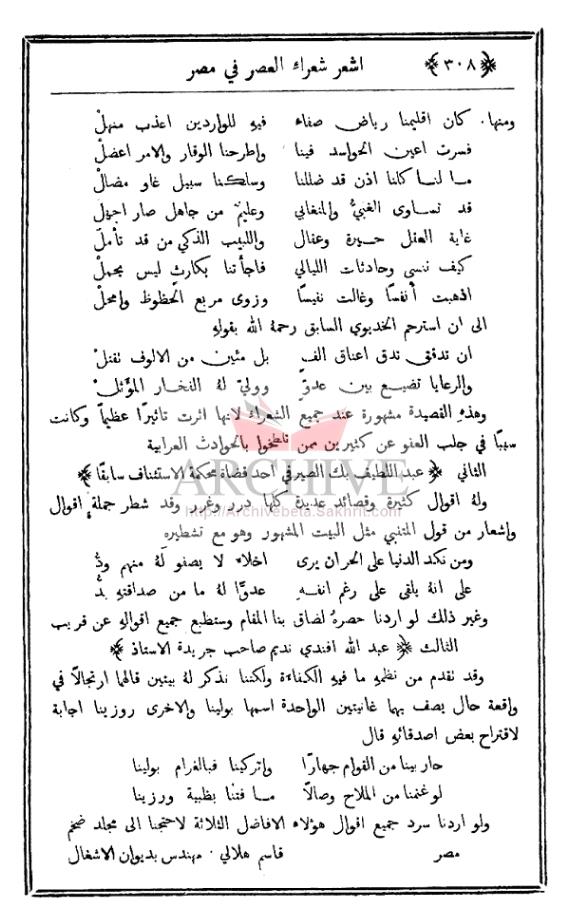 ﴿ ٣٠٨ ﴾ اشعر شعراء العصر في مصر
ومنها. كان اقليمنا رياض صفاء فيهِ للواردين اعذب منهلْ
فسرت اعين الحواسد فينا واطرحنا الوقار والامر اعضلْ
ما لنا كلنا اذن قد ضللنا وسلكنا سبيل غاو مضللْ
قد تساوى الغبيُّ والمتغابي وعليمٌ من جاهل صار اجهل
غاية العقل حسرة وعقال واللبيب الذكي من قد تأملْ
كيف ننسى وحادثات الليالي فاجأتنا بكارثٍ ليس يحملْ
اذهبت أنفسًا وغالت نفيسًا وزوى مربع الحظوظ وامحلْ
الى ان استرحم الخديوي السابق رحمهُ الله بقولهِ
ان تدقق تدق اعناق الف بل مئين من الالوف تقتلْ
والرعايا تضيع بين عدوّ ووليّ لهُ الفخار المؤثلْ
وهذهِ القصيدة مشهورة عند جميع الشعراء لانها اثرت تاثيرًا عظيماً وكانت
سببًا في جلب العفو عن كثيرين ممن تلطخوا بالحوادث العرابية
الثاني ﴿ عبد اللطيف بك الصيرفي احد قضاة محكمة الاستئناف سابقًا ﴾
ARCHIVE
ولهُ اقوال كثيرة وقصائد عديدة كلها درر وغرر وقد شطر جملةٍ اقوال
http://Archivebeta.Sakhrit.com
واشعار من قول المتنبي مثل البيت المشهور وهو مع تشطيره
ومن نكد الدنيا على الحر ان يرى اخلاء لا يصفو لهُ منهم ودُّ
على انهُ يلقى على رغم انفهِ عدوًّا لهُ ما من صداقتهِ بدُّ
وغير ذلك لو اردنا حصرهُ لضاق بنا المقام وستطبع جميع اقوالهِ عن قريب
الثالث ﴿ عبد الله افندي نديم صاحب جريدة الاستاذ ﴾
وقد تقدم من نظمهِ ما فيهِ الكفاءة ولكننا نذكر لهُ بيتين قالهما ارتجالًا في
واقعة حال يصف بهما غانيتين الواحدة اسمها بولينا والاخرى روزينا اجابة
لاقتراح بعض اصدقائهِ قال
حاربينا من القوام جهارًا واتركينا فبالغرام بولينا
لو غنمنا من الملاح وصالًا ما فتنا بظبية ورزينا
ولو اردنا سرد جميع اقوال هؤلاء الافاضل الثلاثة لاحتجنا الى مجلد ضخم
مصر قاسم هلالي. مهندس بديوان الاشغال